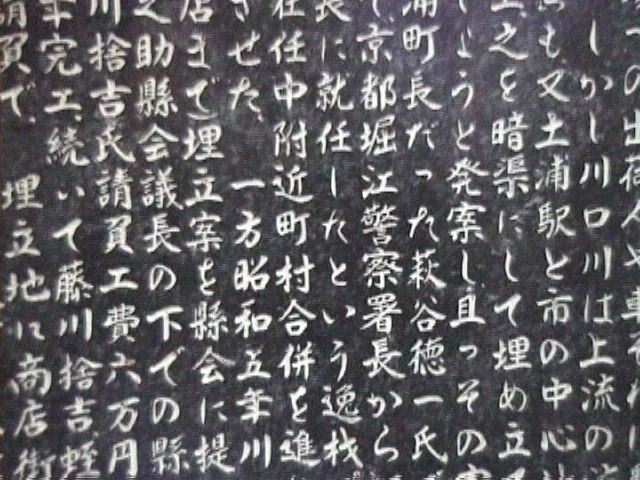 つの出荷
しかし川口川は上流の
も又土浦駅と市の中心
之を暗渠にして埋め立
ようと発案し且つその
浦町長だった萩谷徳一氏
京都堀江警察署長から
長に就任したという逸材
在任中附近町村合併を進
させた 一方昭和五年川
店まで埋立案を縣会に提
之助縣会議長の下での縣
川捨吉氏請負工費六万円
年完工続いて藤川捨吉蛭
請負で 埋立地に商店街